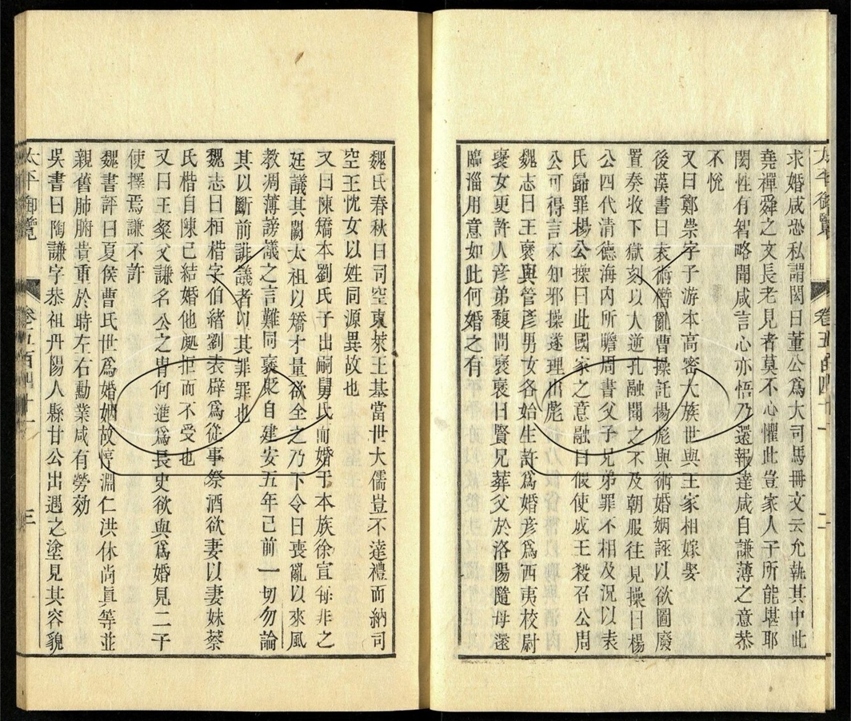 太平御覽 卷五百四十一 二
求婚咸恐私謂閎曰董公爲大司馬冊文云允執其中此
堯禪舜之文長老見者莫不心懼此豈家人子所能堪耶
閎性有智略聞咸言心亦悟乃還報達咸自謙薄之意恭
不悅
又曰鄭崇字子游本高密大族世與王家相嫁娶
後漢書曰袁術僭亂曹操託楊彪與術婚姻誣以欲圖廢
置奏收下獄刻以大逆孔融聞之不及朝服往見操曰楊
公四代清德海內所瞻周書父子兄弟罪不相及況以袁
氏歸罪楊公操曰此國家之意融曰假使成王殺召公周
公可得言不知邪操遂理出彪
魏志曰王裒與管彥男女各始生許爲婚彥爲西夷校尉
裒女更許人彥弟馥問裒裒曰賢兄葬父於洛陽隨母還
臨淄用意如此何婚之有
魏氏春秋曰司空東萊王基當世大儒豈不達禮而納司
空王忱女以姓同源異故也
又曰陳矯本劉氏子出嗣舅氏而婚于本族徐宣每非之
廷議其闕太祖以矯才量欲全之乃下令曰喪亂以來風
教凋薄謗議之言難同褒貶自建安五年已前一切勿論
其以斷前誹議者以其罪罪也
魏志曰桓楷字伯緒劉表辟爲從事祭酒欲妻以妻妹蔡
氏楷自陳已結婚他處拒而不受也
又曰王粲父謙名公之胄何進爲長史欲與爲婚見二子
使擇焉謙不許
魏書評曰夏侯曹氏世爲婚姻故惇淵仁洪休尚眞等並
親舊肺腑貴重於時左右勳業咸有勞効
吳書曰陶謙字恭祖丹陽人縣甘公出遇之塗見其容貌
太平御覽 卷五百四十一 三